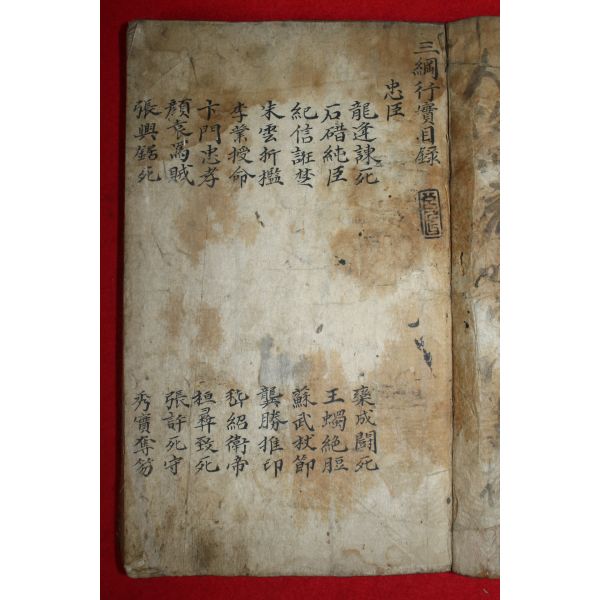 三綱行實目錄
忠臣
龍逢諫死 欒成鬪死
石碏純臣 王蠋絶脰
紀信誑楚 蘇武杖節
朱雲折檻 龔勝推印
李業授命 嵇紹衛帝
卞門忠孝 桓彛致死
顔袁罵賊 張許死守
張興鋸死 秀實奪笏